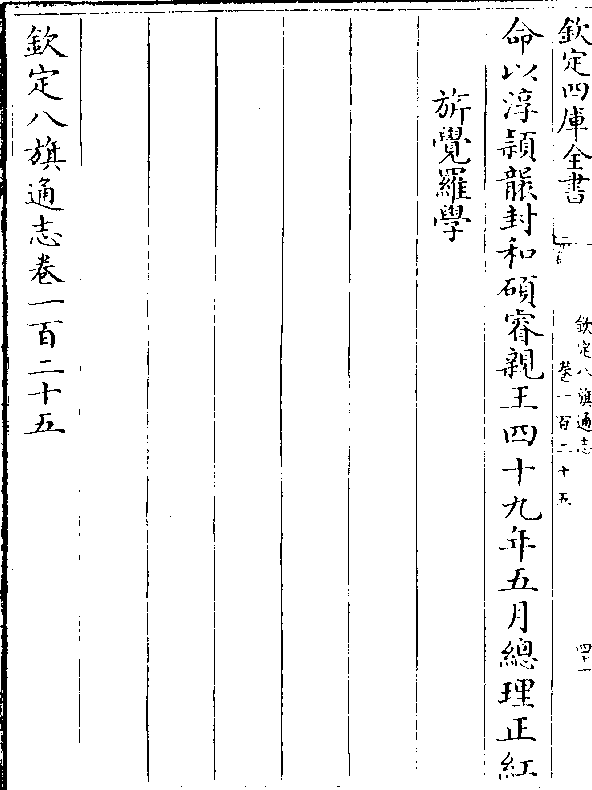 欽定四庫全書
欽定八旗通志
卷一百二十五
四十一
命以淳穎襲封和碩睿親王四十九年五月總理正紅
旂覺羅學
欽定八旗通志卷一百二十五